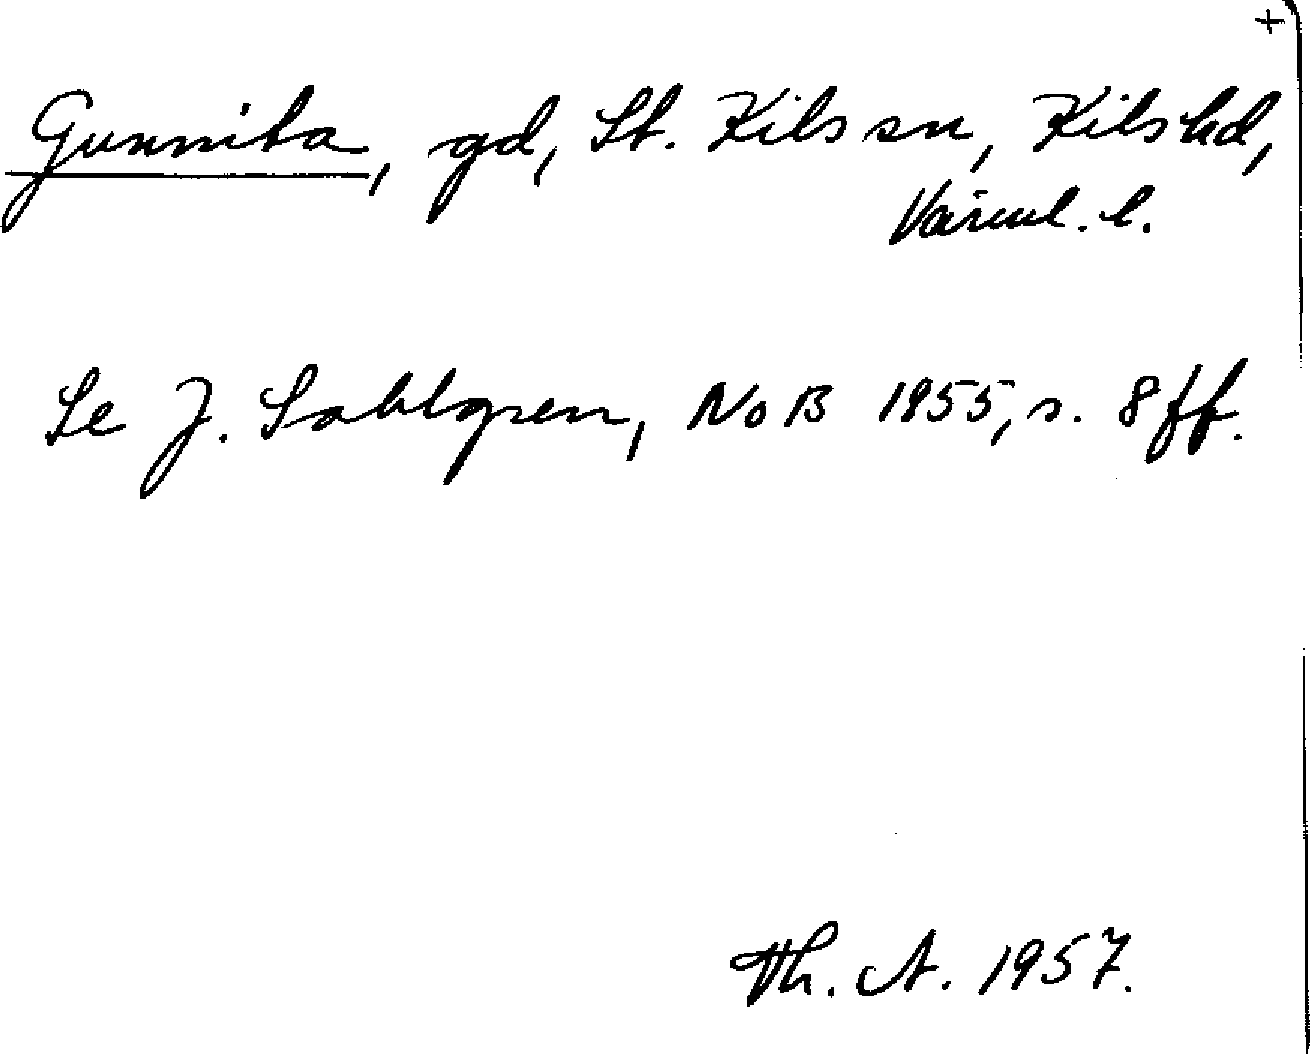 +
Gunnita, gd, St. Kils sn, Kils hd,
Värml. l.
Se J. Sahlgren, NoB 1955, s. 8 ff.
Th. A. 1957.